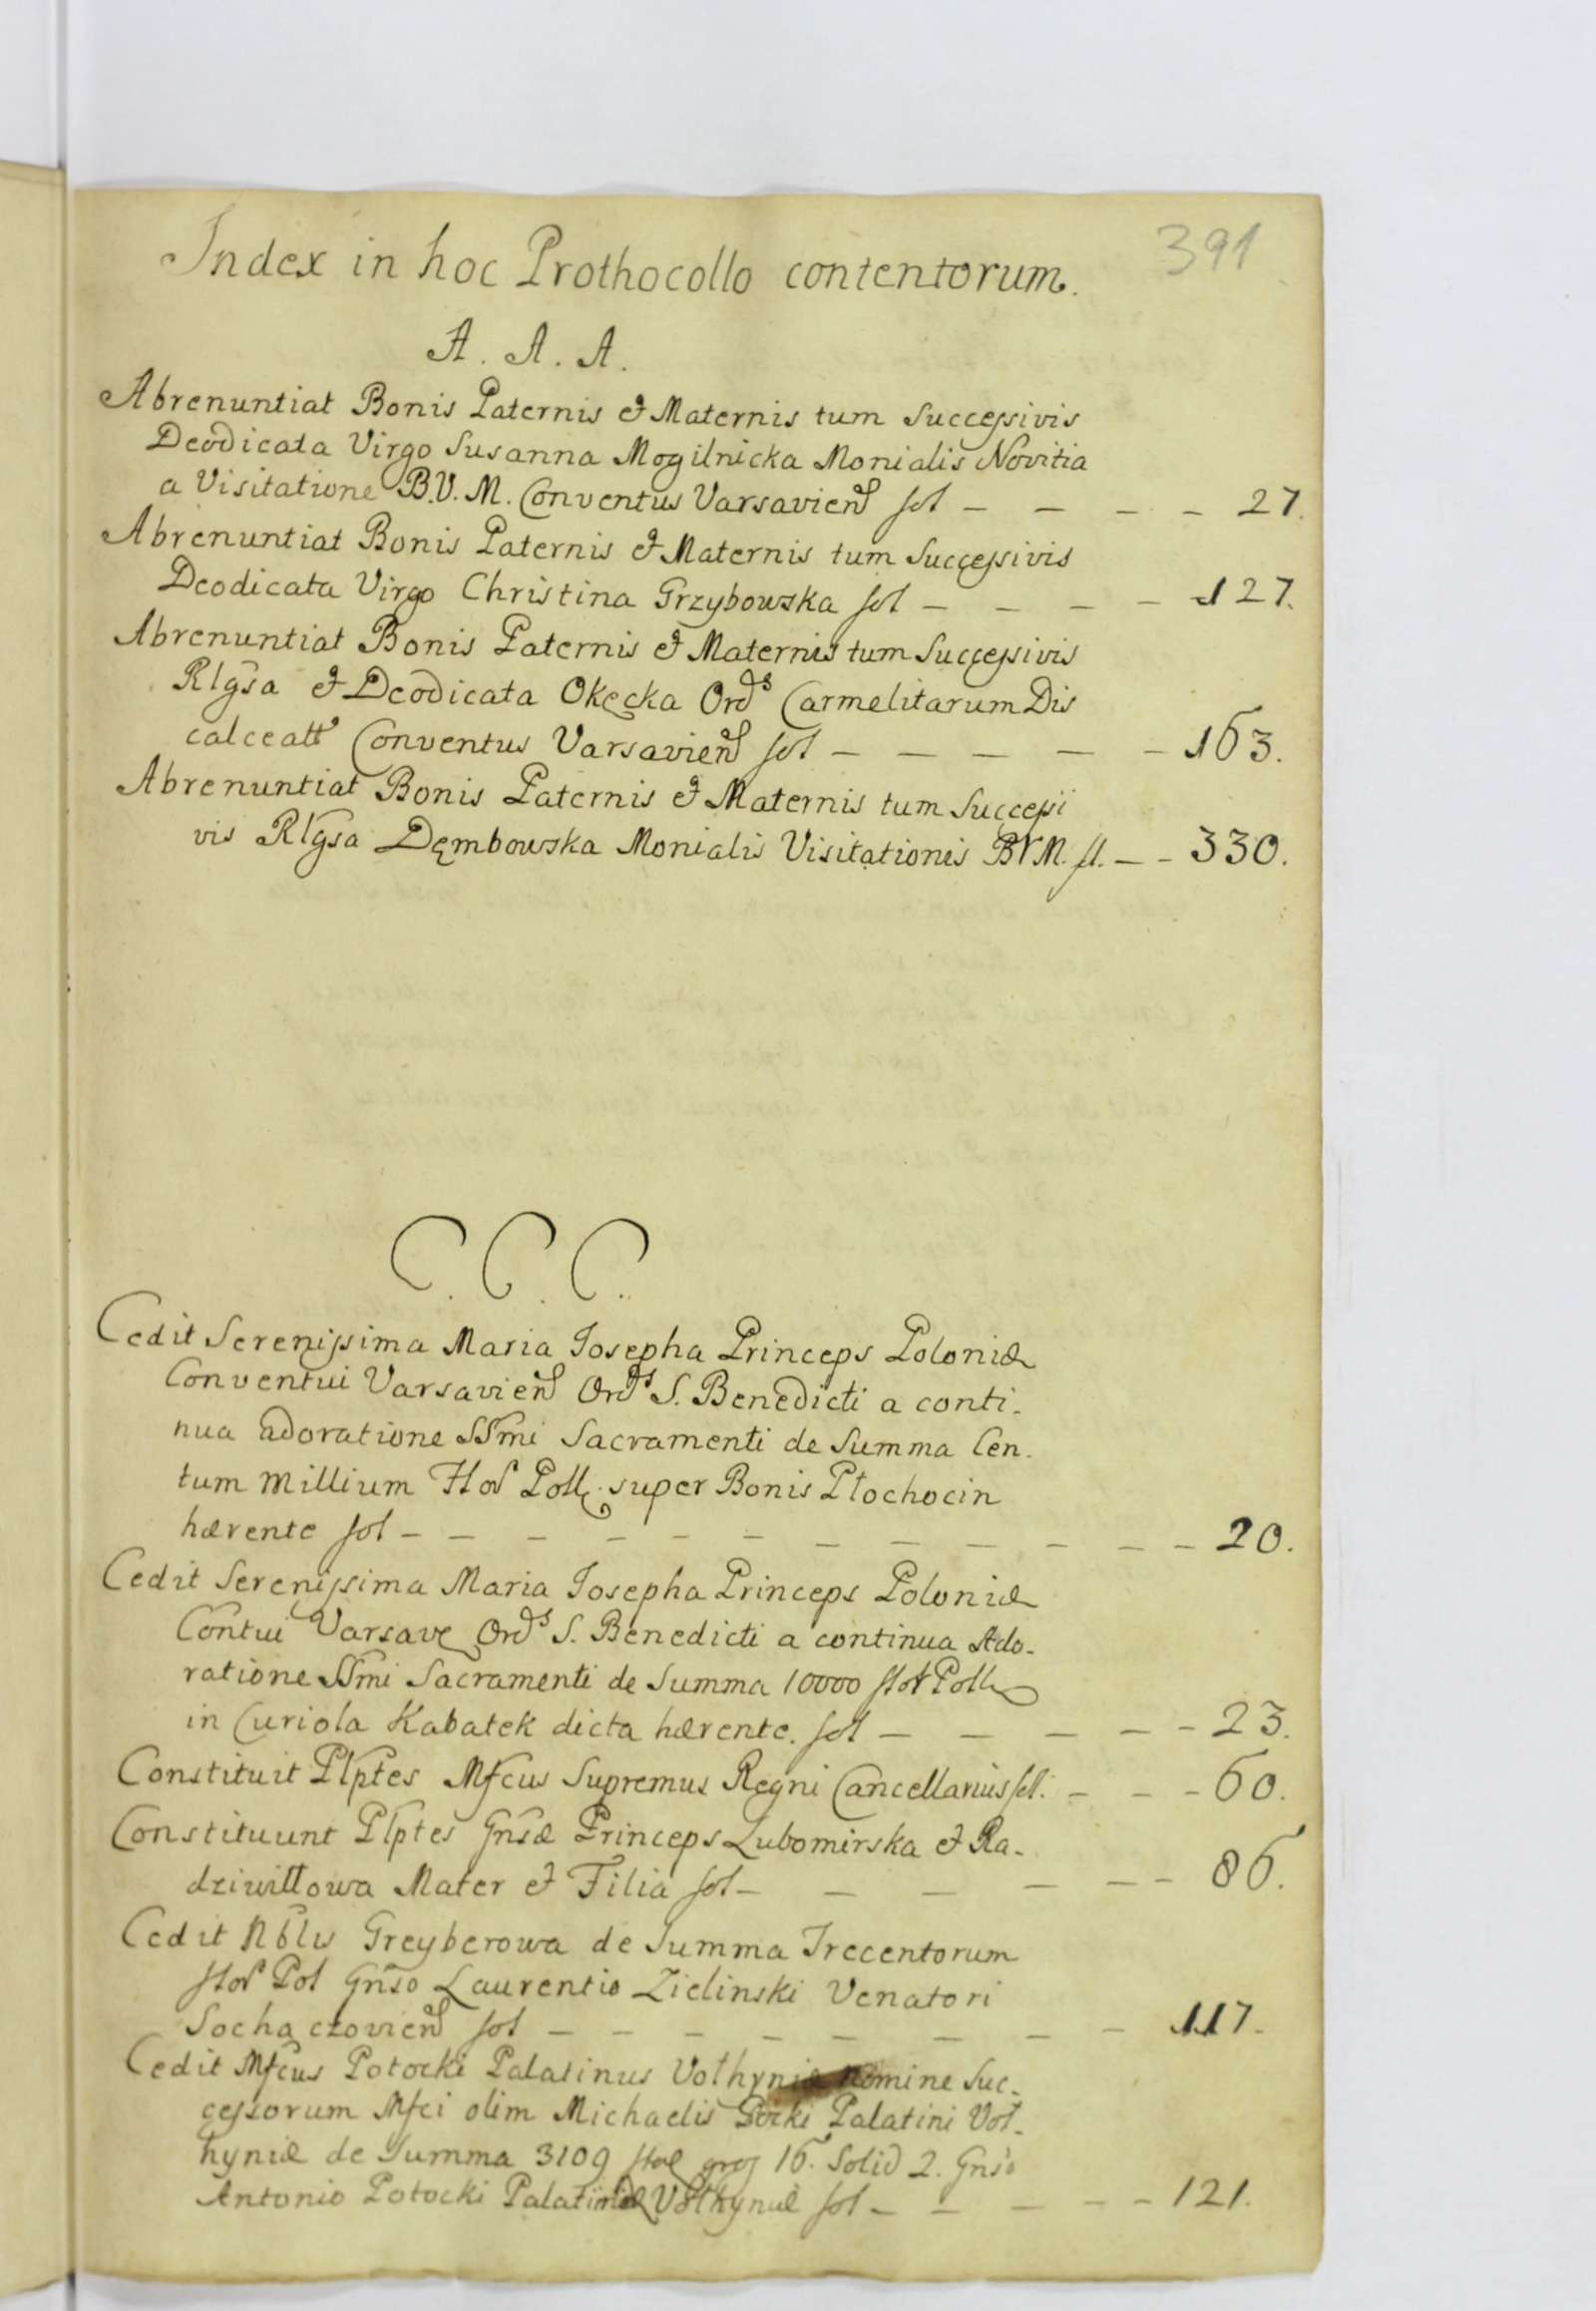 391
Index in hoc Prothocollo contentorum.
A. A. A.
Abrenuntiat Bonis Paternis et Maternis tum Successivis
Deodicata Virgo Susanna Mogilnicka Monialis Novitia
a Visitatione B.V.M. Conventus Varsavien fol – – – – 27.
Abrenuntiat Bonis Paternis et Maternis tum Successivis
Deodicata Virgo Christina Grzybowska fol – – – – 127.
Abrenuntiat Bonis Paternis et Maternis tum Successivis
Rlgsa et Deodicata Okęcka Ords Carmelitarum Dis
calceatt Conventus Varsavien fol – – – – – 163.
Abrenuntiat Bonis Paternis et Maternis tum Successi
vis Rlgsa Dęmbowska Monialis Visitationis BVM. fl. – – 330.
C. C. C.
Cedit Serenissima Maria Josepha Princeps Poloniæ
Conventui Varsavien Ords S. Benedicti a conti-
nua adoratione SSmi Sacramenti de Summa Cen-
tum Millium Flor Poll. super Bonis Płochocin
hærente fol – – – – – – – – – – – – 20.
Cedit Serenissima Maria Josepha Princeps Poloniæ
Contui Varsave Ords S. Benedicti a continua Ado-
ratione SSmi Sacramenti de Summa 10000 flor Poll
in Curiola Kabatek dicta hærente. fol – – – – – 23.
Constituit Plptes Mfcus Supremus Regni Cancellarius fol. – – – 60.
Constituunt Plptes Gnsæ Princeps Lubomirska et Ra-
dziwiłłowa Mater et Filia fol – – – – – – 86.
Cedit Nblis Greyberowa de Summa Trecentorum
flor Pol Gnso Laurentio Zielinski Venatori
Sochaczovien fol – – – – – – – – 117.
Cedit Mfcus Potocki Palatinus Volhyniæ nomine Suc-
cessorum Mfci olim Michaelis Palatini Vol-
hyniæ de Summa 3109 gros 16. Solid 2. Gnso
Antonio Potocki Volhyniæ fol – – – – – 121.